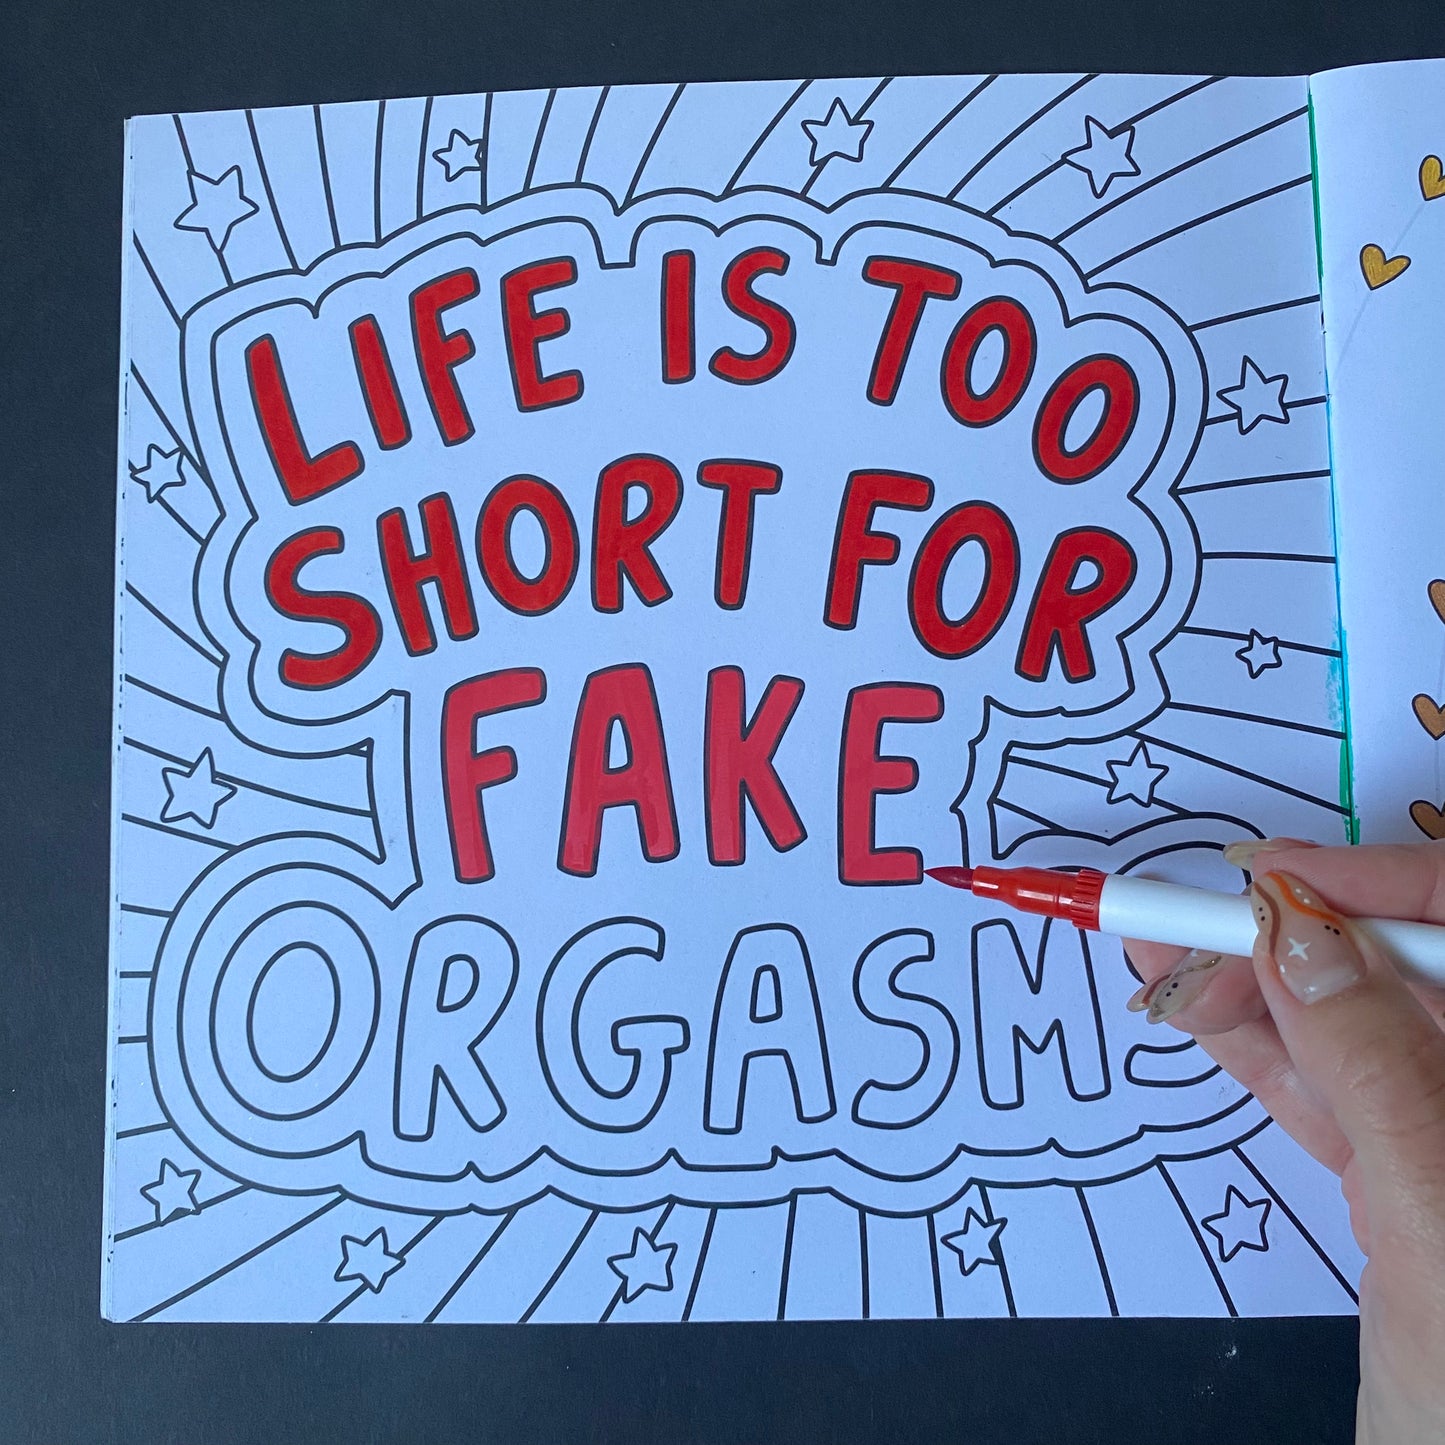 LIFE IS TOO
SHORT FOR
FAKE
ORGASMS